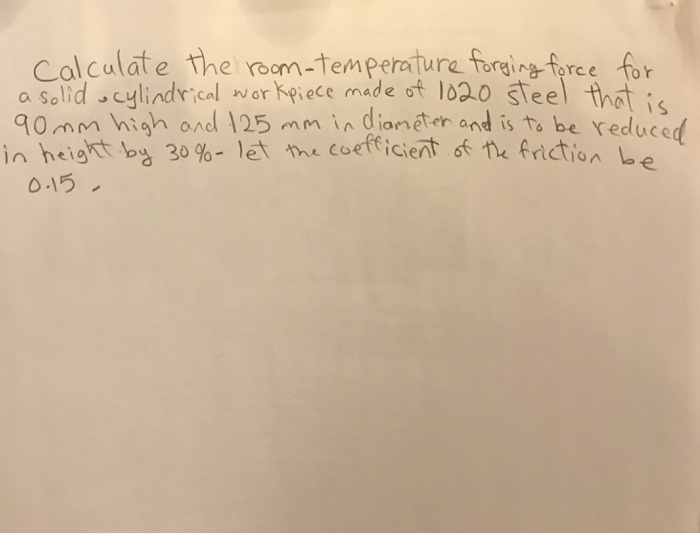 Calculate the room-temperature forging force for
a solid, cylindrical workpiece made of 1020 steel that is
90mm high and 125 mm in diameter and is to be reduced
in height by 30%- let the coefficient of the friction be
0.15.